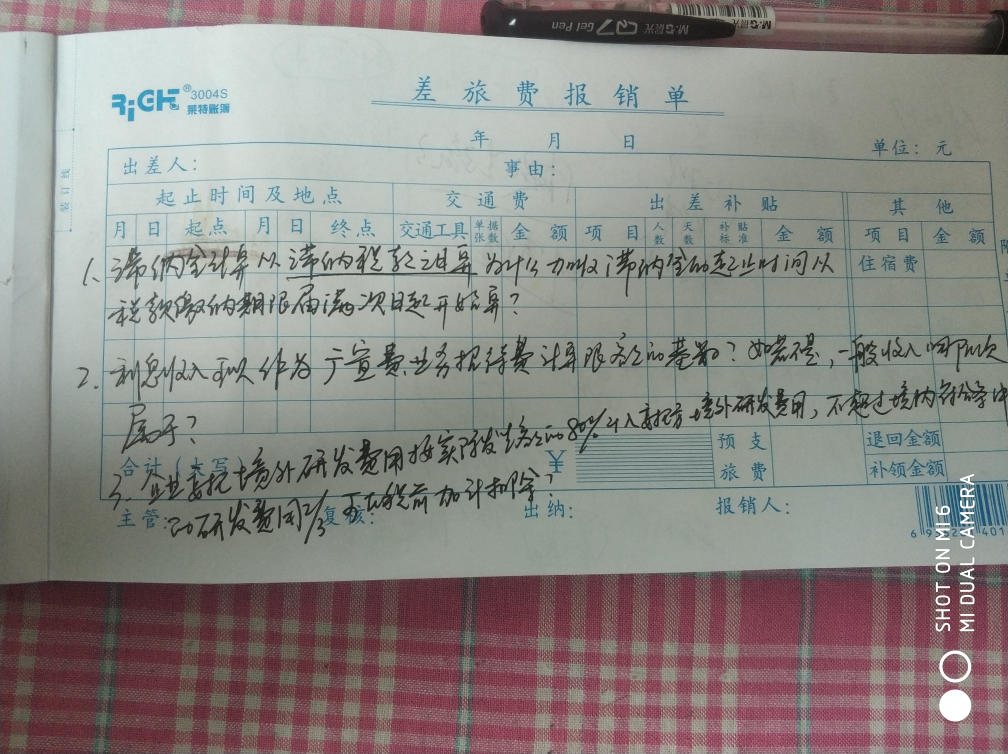 M&G 晨光 Q7 Gel Pen M&G 晨光 M&G
RiGHT ® 3004S
莱特账簿
差旅费报销单
年 月 日
单位：元
装订线
出差人： 事由：
起止时间及地点 交通费 出差补贴 其他
月 日 起点 月 日 终点 交通工具 单据张数 金额 项目 人数 天数 补贴标准 金额 项目 金额
1. 滞纳金计算从滞纳税款之日算 为什么加收滞纳金的起止时间从
住宿费
税款缴纳期限届满次日起开始算？
2. 利息收入可以作为广宣费、业务招待费计算限额的基数？如若不是，一般收入
属于？
3. 企业委托境外研发费用按实际发生额的80%计入委托方境外研发费用，不超过境内符合条件
的研发费用2/3 可在税前加计扣除？
合计（大写） ¥ 预支旅费 退回金额
补领金额
主管： 复核： 出纳： 报销人：
SHOT ON MI 6
MI DUAL CAMERA